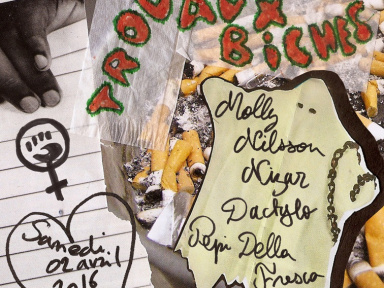 TROU AUX
BICHES
Molly
Nilsson
Nizar
Dactylo
Pepi Della
Fresco
Samedi
02 avril
2016